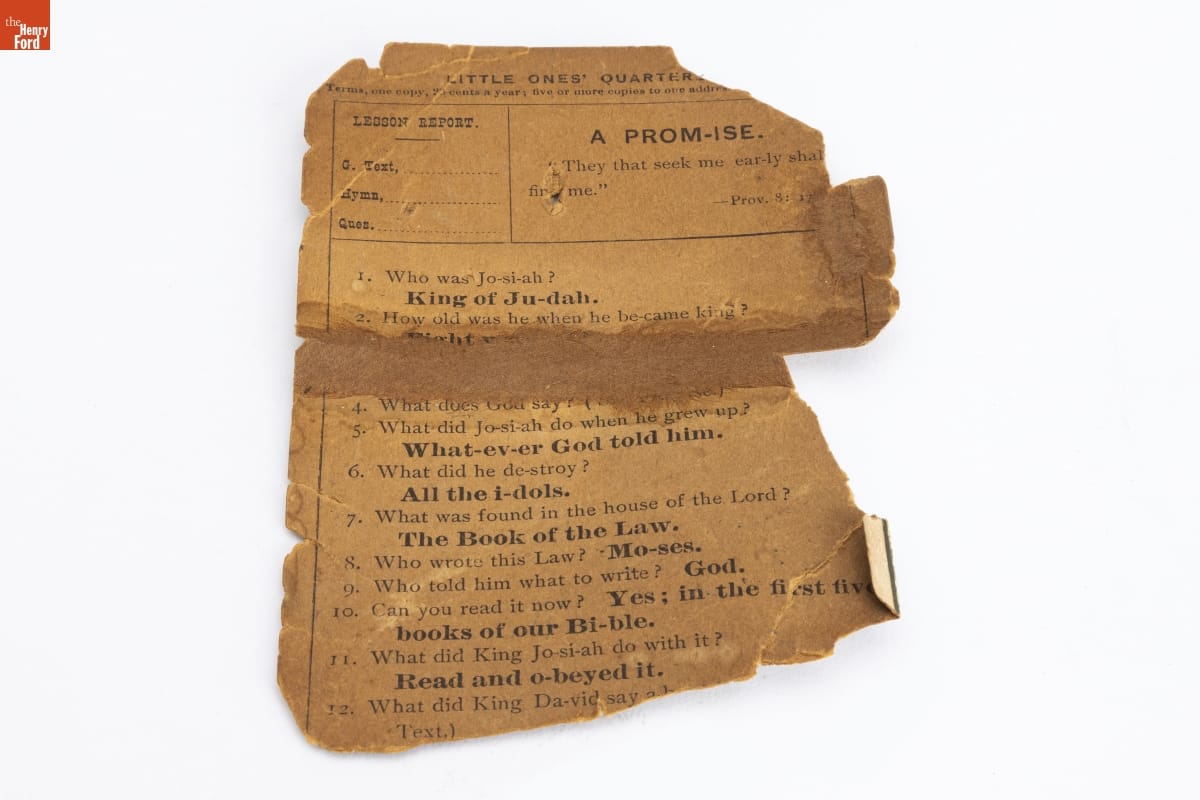 the
Henry
Ford
LITTLE ONES' QUARTER
Terms, one copy, cents a year; five or more copies to one addre
LESSON REPORT.
G. Text,
Hymn,
Ques.
A PROM-ISE.
"They that seek me ear-ly shal
me."
—Prov. 8: 17
1. Who was Jo-si-ah?
King of Ju-dah.
2. How old was he when he be-came king?
Eight
4. What does God say? (
5. What did Jo-si-ah do when he grew up?
What-ev-er God told him.
6. What did he de-stroy?
All the i-dols.
7. What was found in the house of the Lord?
The Book of the Law.
8. Who wrote this Law? Mo-ses.
9. Who told him what to write? God.
10. Can you read it now? Yes; in the first five
books of our Bi-ble.
11. What did King Jo-si-ah do with it?
Read and o-beyed it.
12. What did King Da-vid say
Text.)